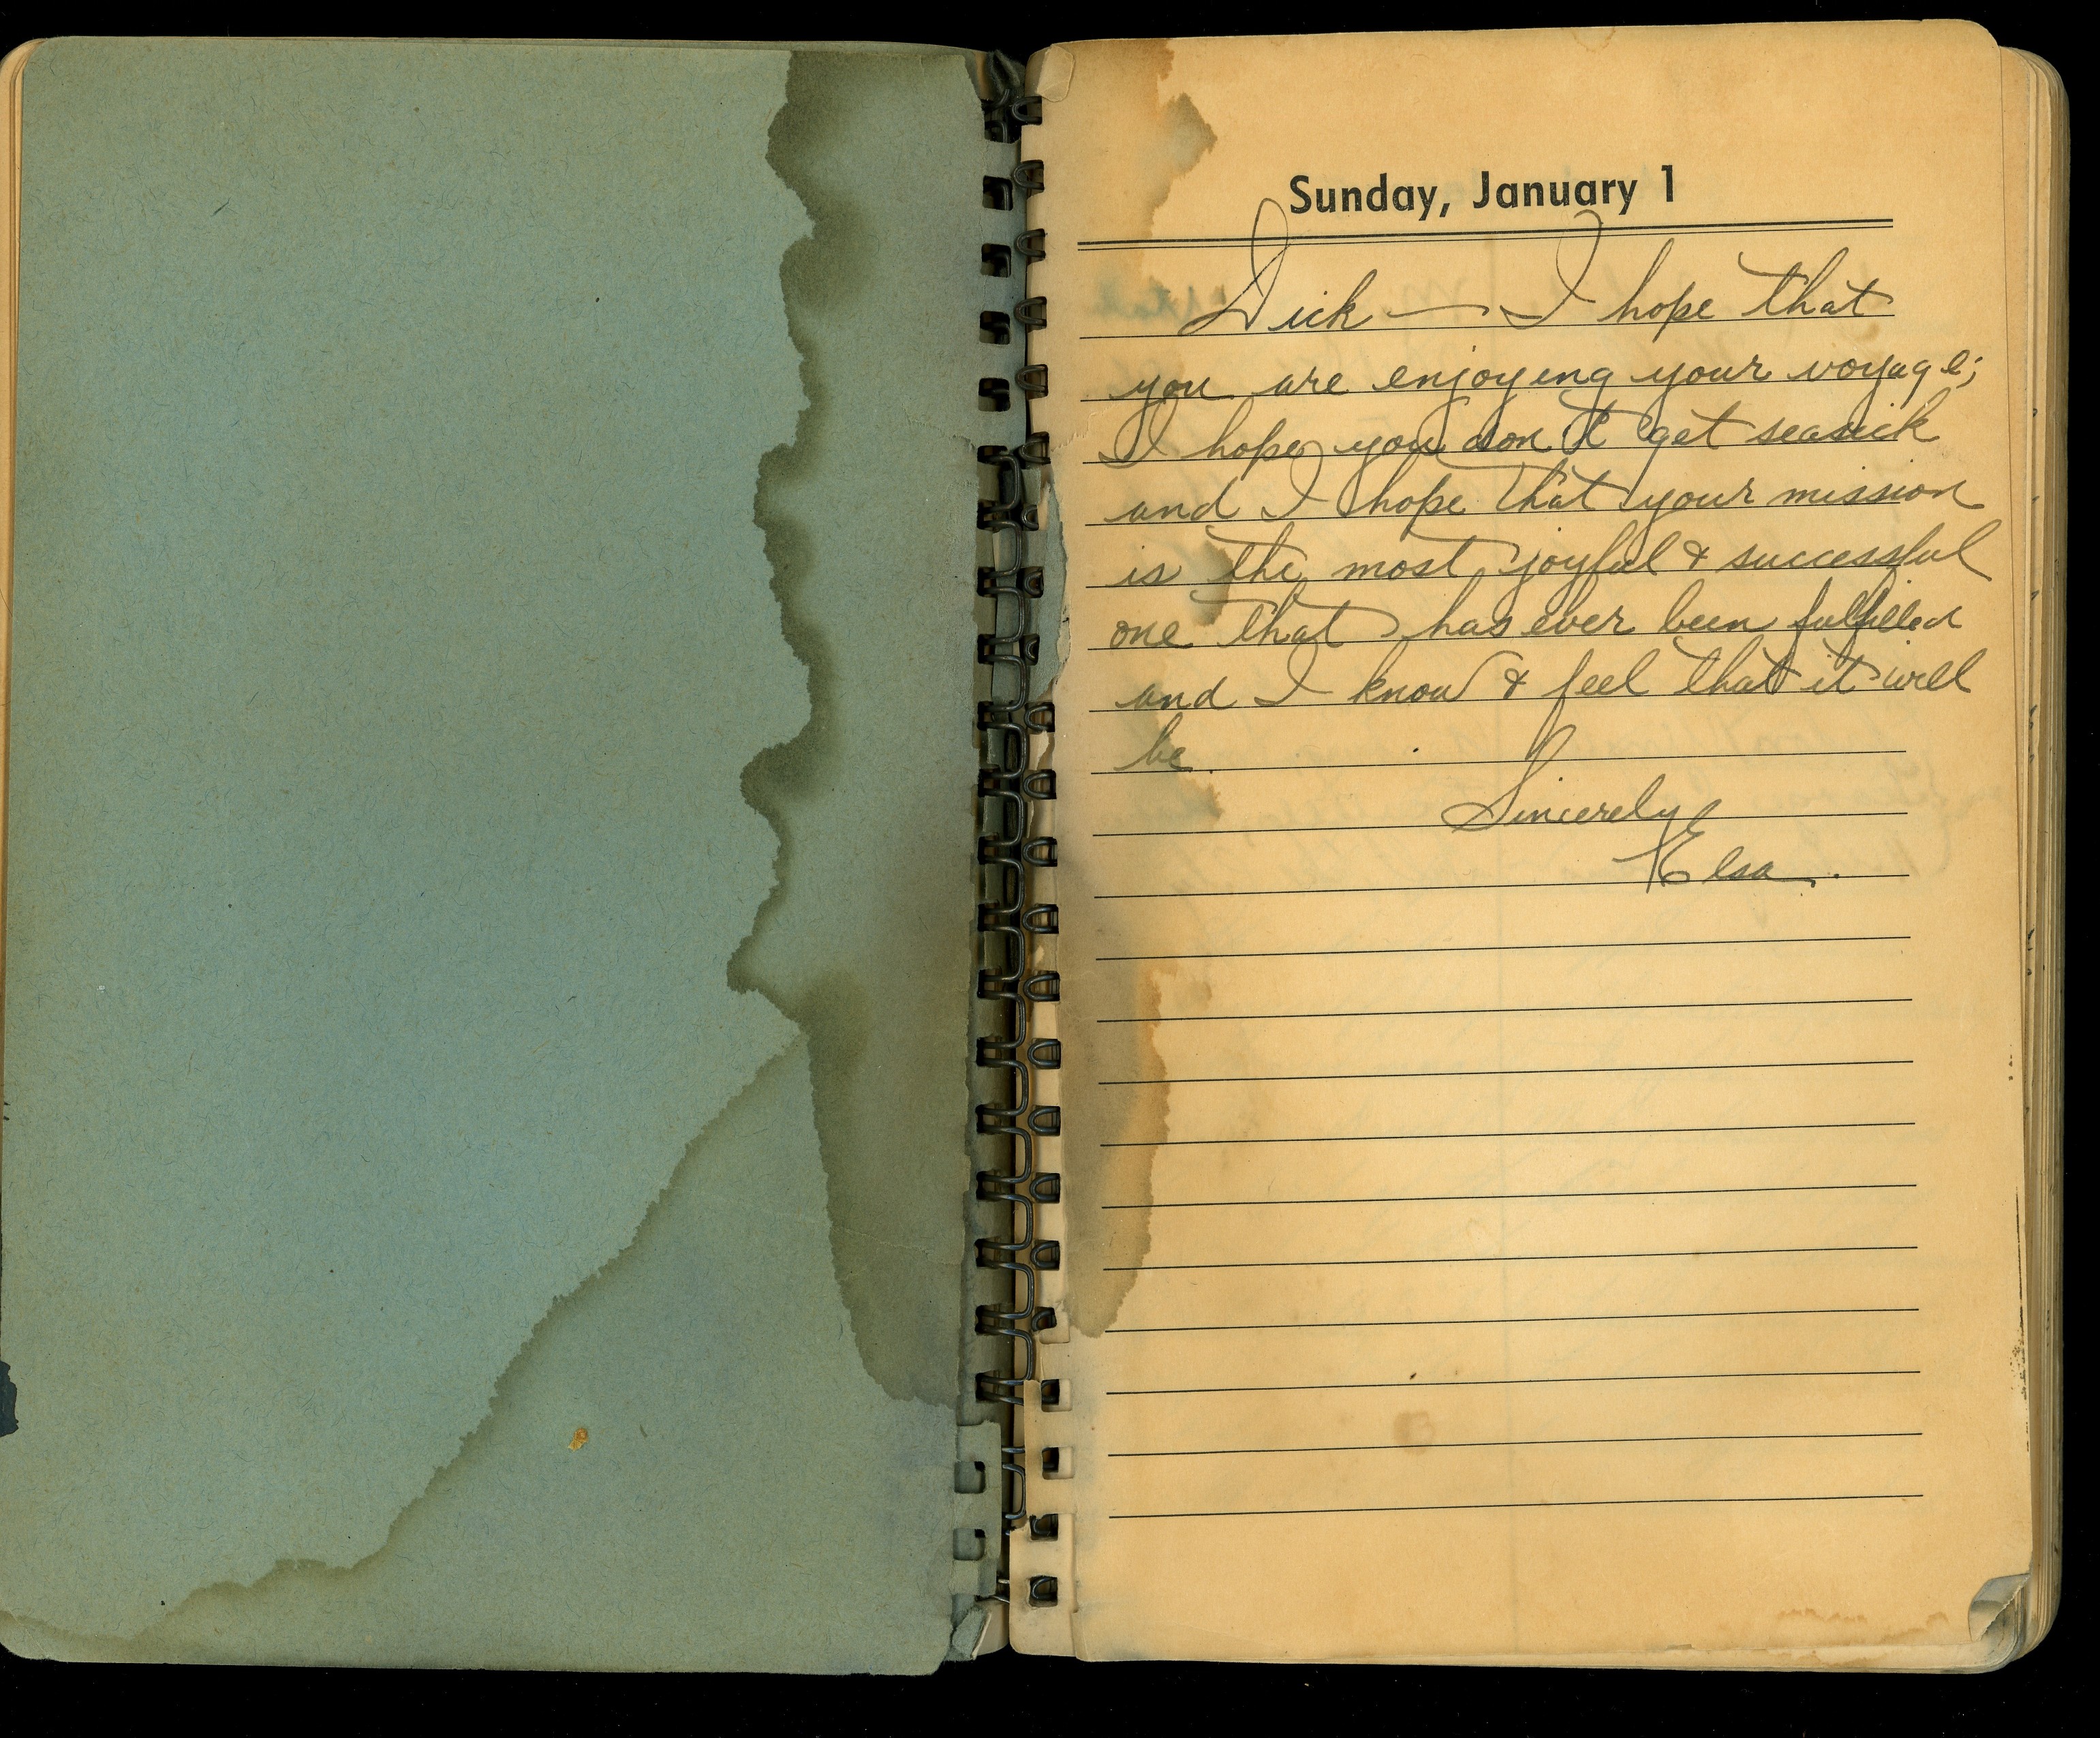 Sunday, January 1
Dick — I hope that
you are enjoying your voyage;
I hope you don't get seasick
and I hope that your mission
is the most joyful & successful
one that has ever been fulfilled
and I know & feel that it will
be.
Sincerely
Elsa.